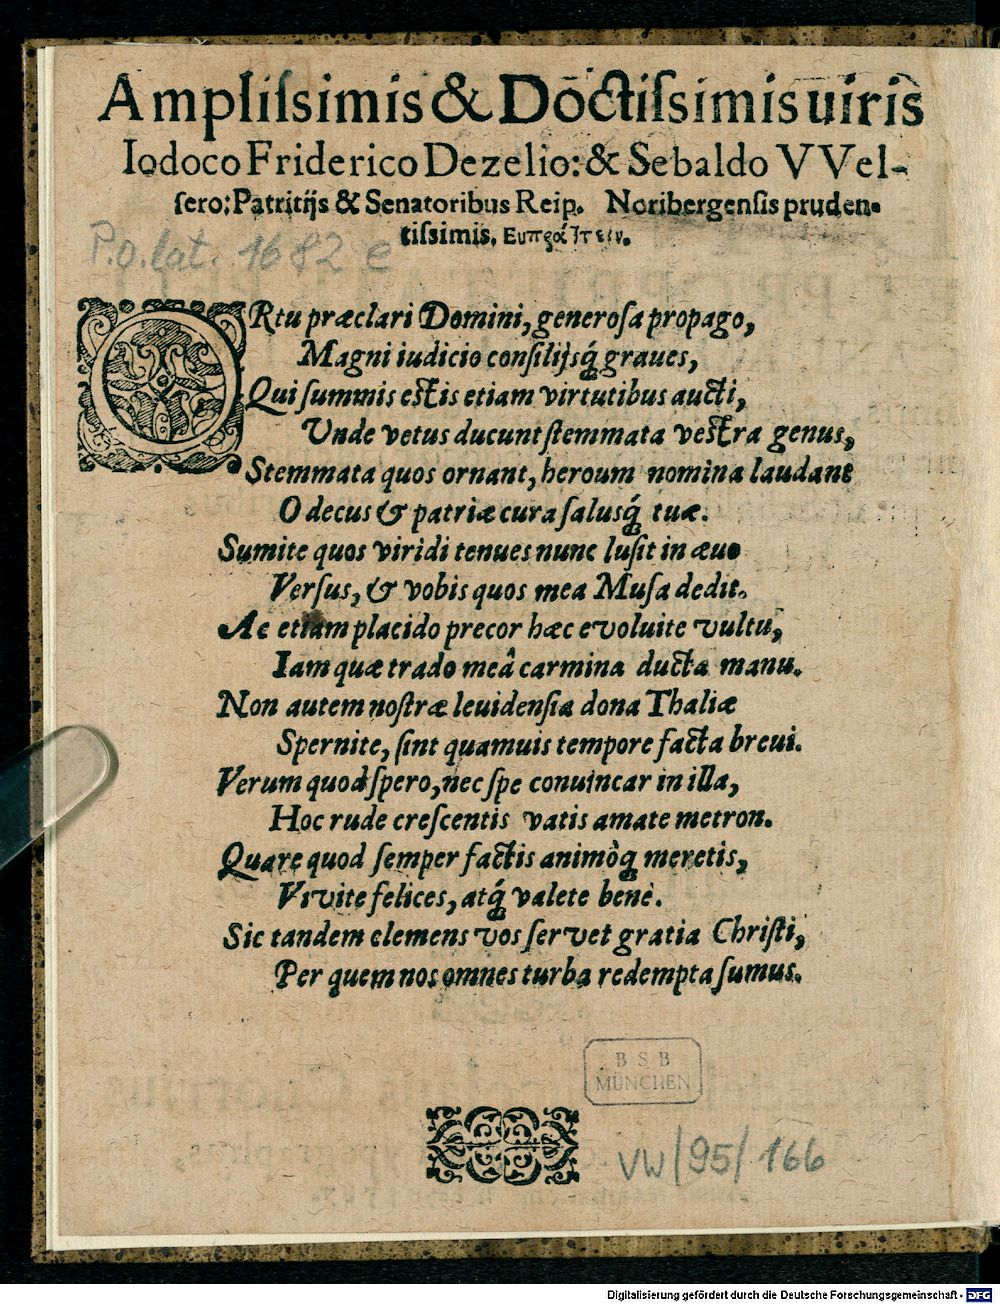 Ampliſsimis & Doctiſsimis uiris
Iodoco Friderico Dezelio: & Sebaldo VVel-
ſero: Patritijs & Senatoribus Reip. Noribergenſis pruden-
tiſsimis,
P.o.lat. 1682 e
ORtu præclari Domini, generoſa propago,
Magni iudicio conſilijsq́ graues,
Qui ſummis eſtis etiam virtutibus aucti,
Unde vetus ducunt ſtemmata veſtra genus,
Stemmata quos ornant, heroum nomina laudant
O decus & patriæ cura ſalusq́ tuæ.
Sumite quos viridi tenues nunc luſit in æuo
Verſus, & vobis quos mea Muſa dedit.
Ac etiam placido precor hæc evoluite vultu,
Iam quæ trado meâ carmina ducta manu.
Non autem noſtræ leuidenſia dona Thaliæ
Spernite, ſint quamuis tempore facta breui.
Verum quod ſpero, nec ſpe conuincar in illa,
Hoc rude creſcentis vatis amate metron.
Quare quod ſemper factis animòq́ meretis,
Vivite felices, atq́ valete benè.
Sic tandem clemens vos ſervet gratia Chriſti,
Per quem nos omnes turba redempta ſumus.
BSB
MÜNCHEN
VW/95/166
Digitalisierung gefördert durch die Deutsche Forschungsgemeinschaft - DFG